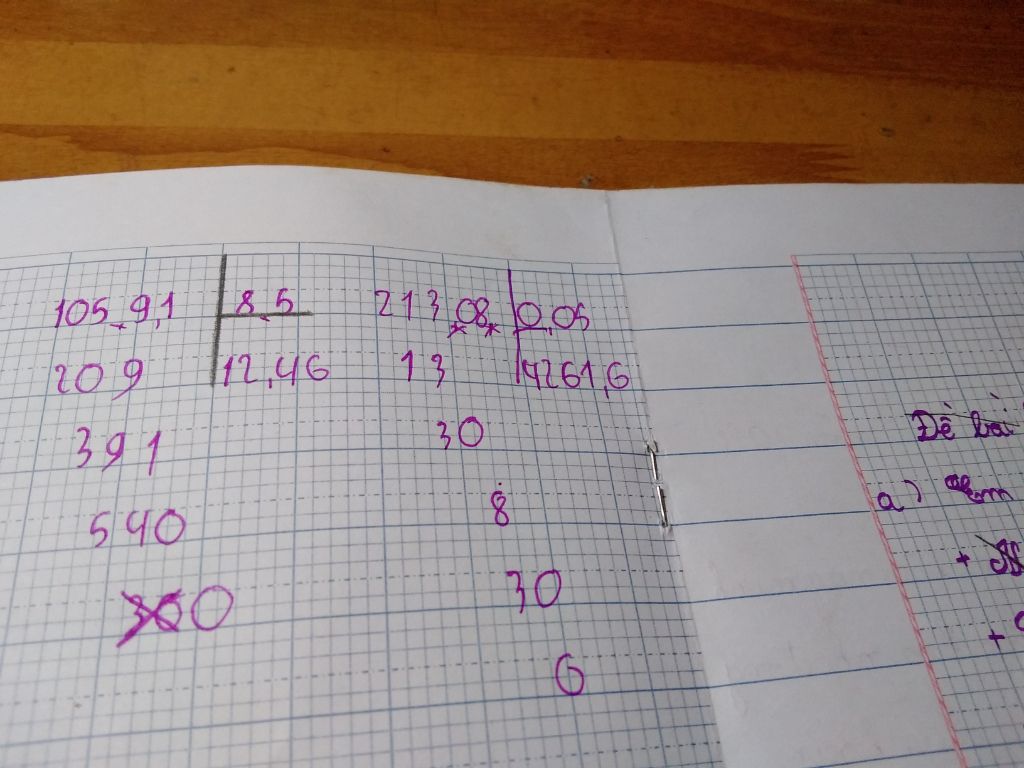 105,9,1 8,5
209 12,46
391
540
0
213,08, 0,05
13 4261,6
30
8
30
6
Đề bài
a)
+
+